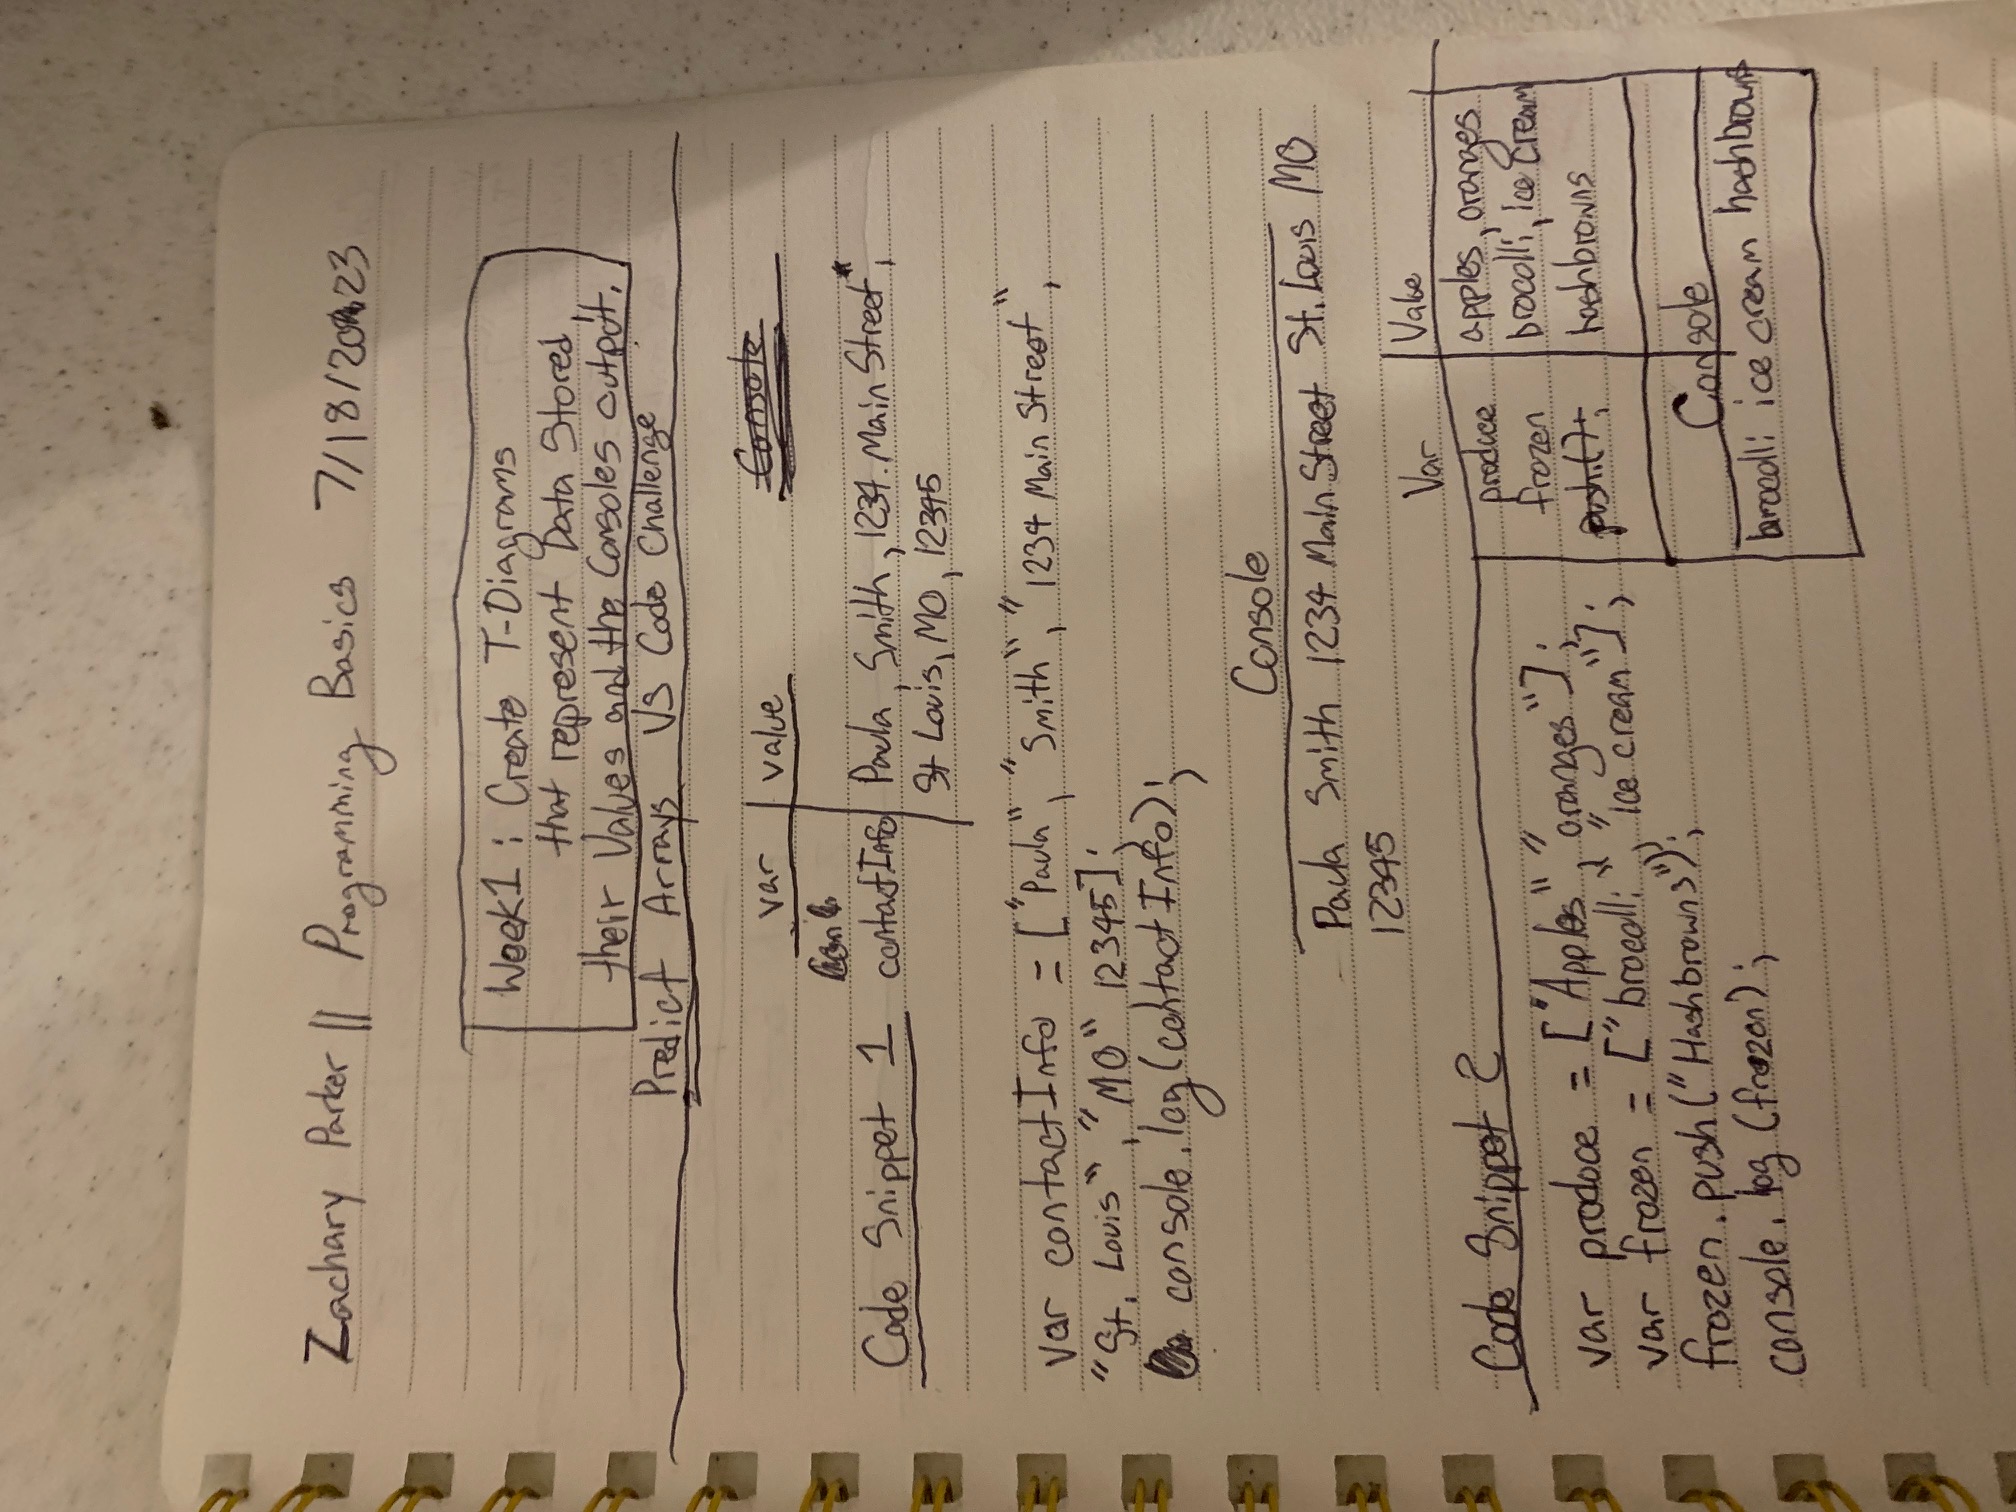 Zachary Parker || Programming Basics 7/18/2023
Week1: Create T-Diagrams
that represent Data Stored,
their Values and the Consoles output.
Predict Arrays VS Code Challenge
var | value
Console
Code Snippet 1
contactInfo | Paula, Smith, 1234 Main Street,
St Louis, MO, 12345
var contactInfo = ["Paula", "Smith", "1234 Main Street",
"St. Louis", "MO" 12345];
console.log(contactInfo);
Console
Paula Smith 1234 Main Street St. Louis MO
12345
Code Snippet 2
var produce = ["Apples", "oranges"];
var frozen = ["brocolli", "ice cream"];
frozen.push("Hashbrowns");
console.log(frozen);
Var | Value
produce | apples, oranges
frozen | brocolli, ice cream
push.(); | hashbrowns
Console
brocolli ice cream hashbrowns